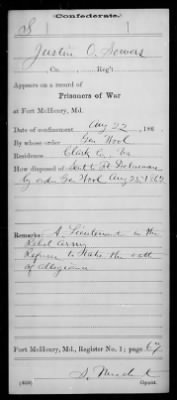 Confederate.
S
Justin O. Sowers
Co. , Reg't
Appears on a record of
Prisoners of War
at Fort McHenry, Md.
Date of confinement Aug 22, 186
By whose order Gen Wool
Residence Clark Co, Va
How disposed of Sent to Ft Delaware
by order Gen Wool Aug 23 1862
Remarks: A Lieutenant in the
Rebel Army
Refuses to take the oath
of allegiance
Fort McHenry, Md., Register No. 1; page 67
Copyist.